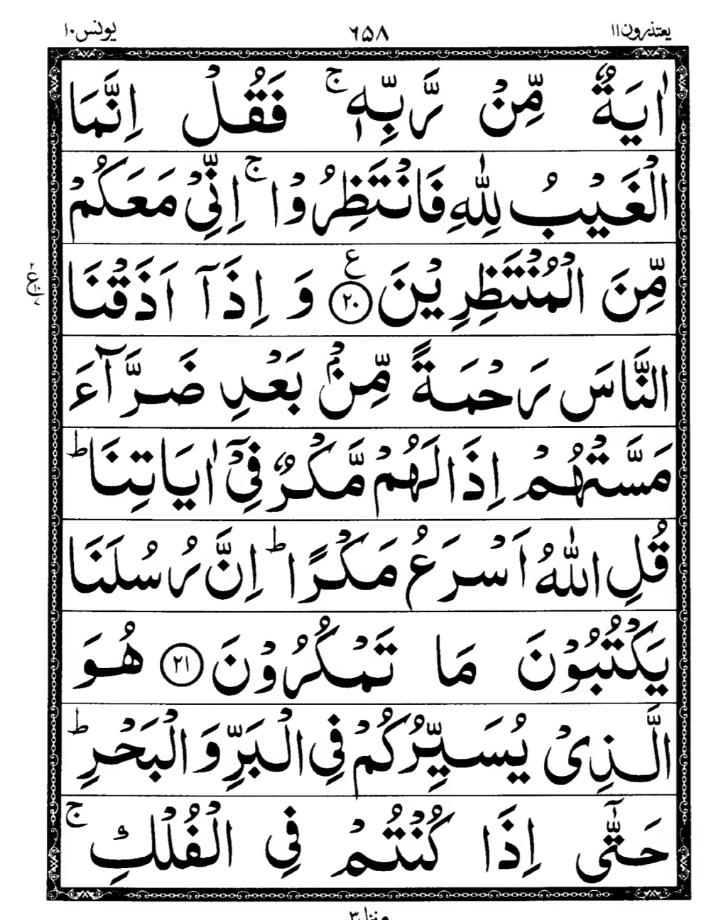 يعتذرون١١ ٦٥٨ يونس١٠
اٰيَةٌ مِّنْ رَّبِّهٖ ۚ فَقُلْ اِنَّمَا
الْغَيْبُ لِلّٰهِ فَانْتَظِرُوْا ۚ اِنِّيْ مَعَكُمْ
مِّنَ الْمُنْتَظِرِيْنَ ﴿٢٠﴾ ع وَ اِذَاۤ اَذَقْنَا
النَّاسَ رَحْمَةً مِّنْۢ بَعْدِ ضَرَّآءَ
مَسَّتْهُمْ اِذَا لَهُمْ مَّكْرٌ فِيْۤ اٰيَاتِنَا ؕ
قُلِ اللّٰهُ اَسْرَعُ مَكْرًا ؕ اِنَّ رُسُلَنَا
يَكْتُبُوْنَ مَا تَمْكُرُوْنَ ﴿٢١﴾ هُوَ
الَّذِىْ يُسَيِّرُكُمْ فِي الْبَرِّ وَ الْبَحْرِ ؕ
حَتّٰۤى اِذَا كُنْتُمْ فِي الْفُلْكِ ۚ
منزل٣